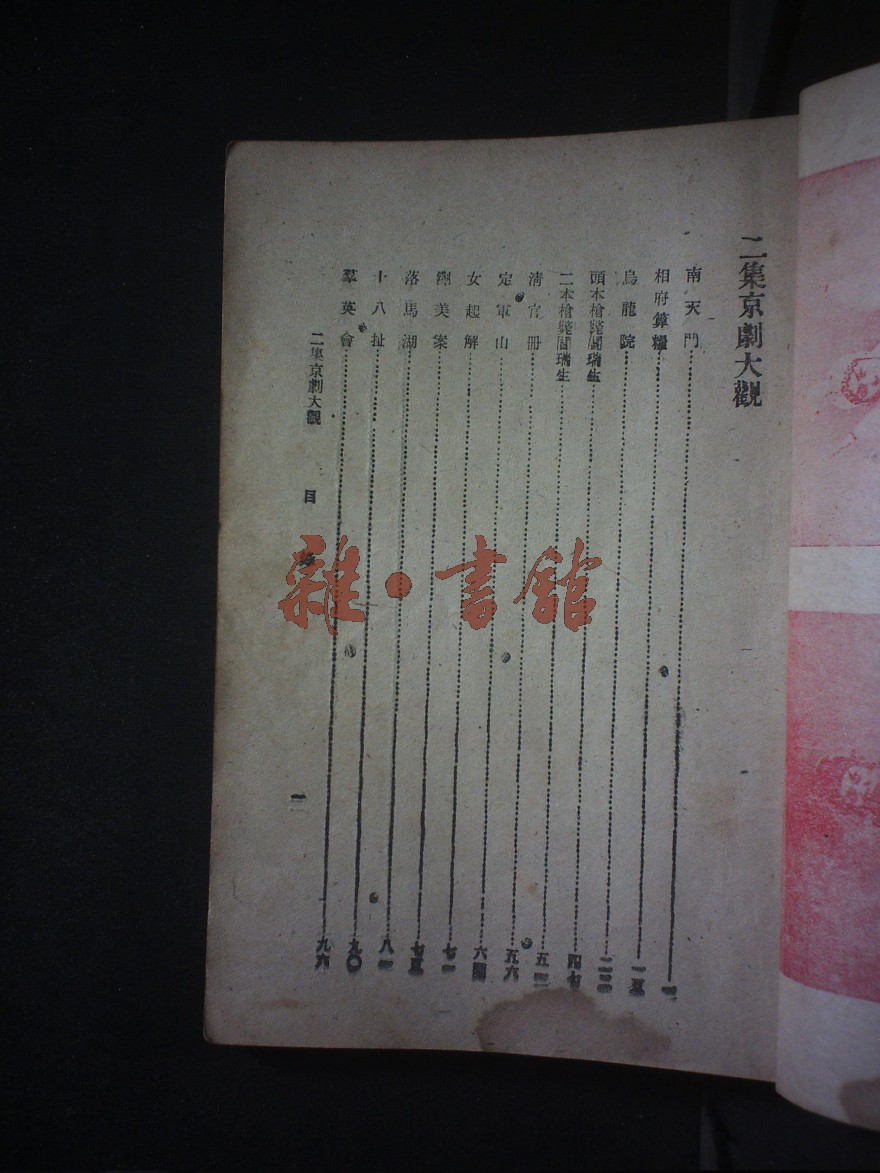 二集京劇大觀
南天門
相府算糧 一五
烏龍院
頭本槍斃閻瑞生 四七
二本槍斃閻瑞生
清官冊 五六
定軍山 六四
女起解 七一
鍘美案 七五
落馬湖 八一
十八扯 九〇
羣英會 九六
二集京劇大觀 目
雜·書館